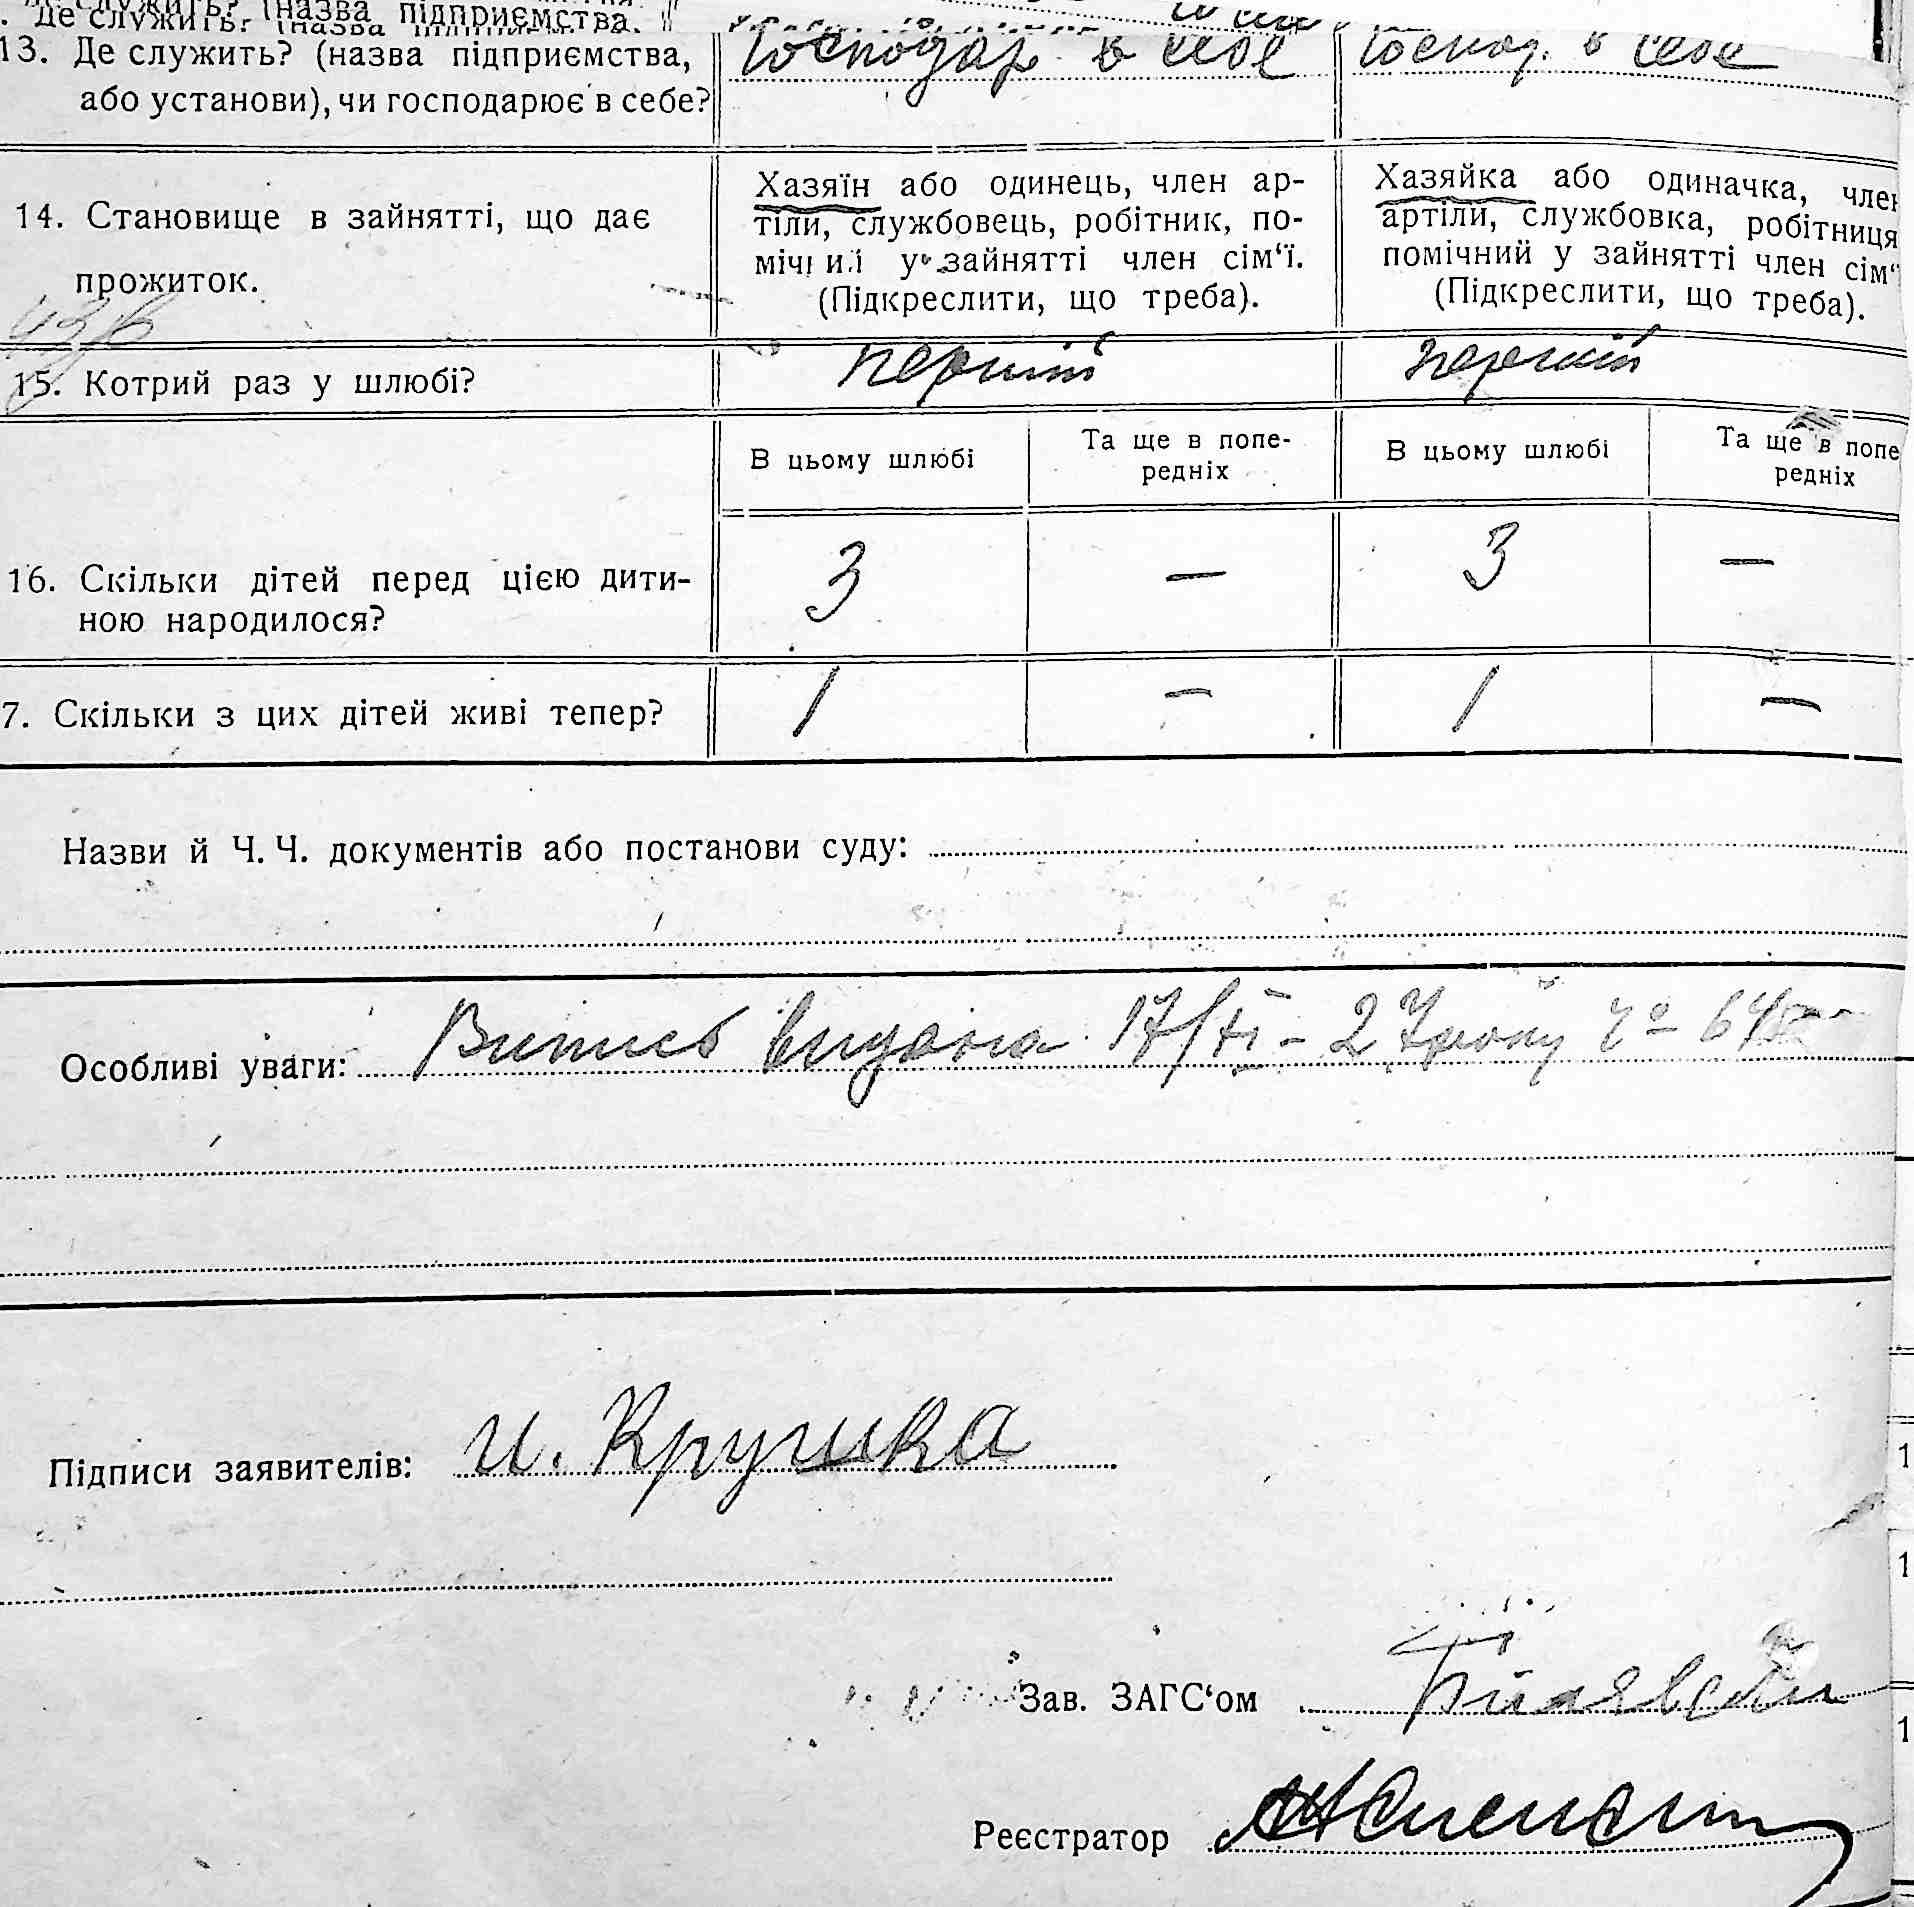 Де служить? (назва підприємства,
13. Де служить? (назва підприємства, Господар в себе Господ. в себе
або установи), чи господарює в себе?
14. Становище в зайнятті, що дає
прожиток.
Хазяїн або одинець, член ар-
тіли, службовець, робітник, по-
мічний у зайнятті член сім‘ї.
(Підкреслити, що треба).
Хазяйка або одиначка, член
артіли, службовка, робітниця
помічний у зайнятті член сім‘
(Підкреслити, що треба).
15. Котрий раз у шлюбі? перший перший
В цьому шлюбі
Та ще в попе-
редніх
В цьому шлюбі
Та ще в попе
редніх
16. Скільки дітей перед цією дити- 3 — 3 —
ною народилося?
7. Скільки з цих дітей живі тепер? 1 — 1 —
Назви й Ч. Ч. документів або постанови суду:
Особливі уваги: Випись видана 17/XI – 27 року
Підписи заявителів: И. Крушка
Зав. ЗАГС‘ом
Реєстратор